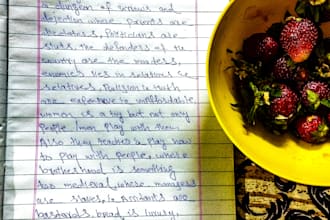 a dungeon of sorrows and
dejection where priests are
dictators, Politicians are
the defenders of the
country are the murders,
enemies lies in relations &
relatives, Religion & truth
are expensive to unaffordable,
women is a toy but not only
People (men) play with them,
Also they teaches & play how
to play with people, where
brotherhood is something
too medieval, where managers
are slaves, & Assistants are
bastards, bread is luxury,